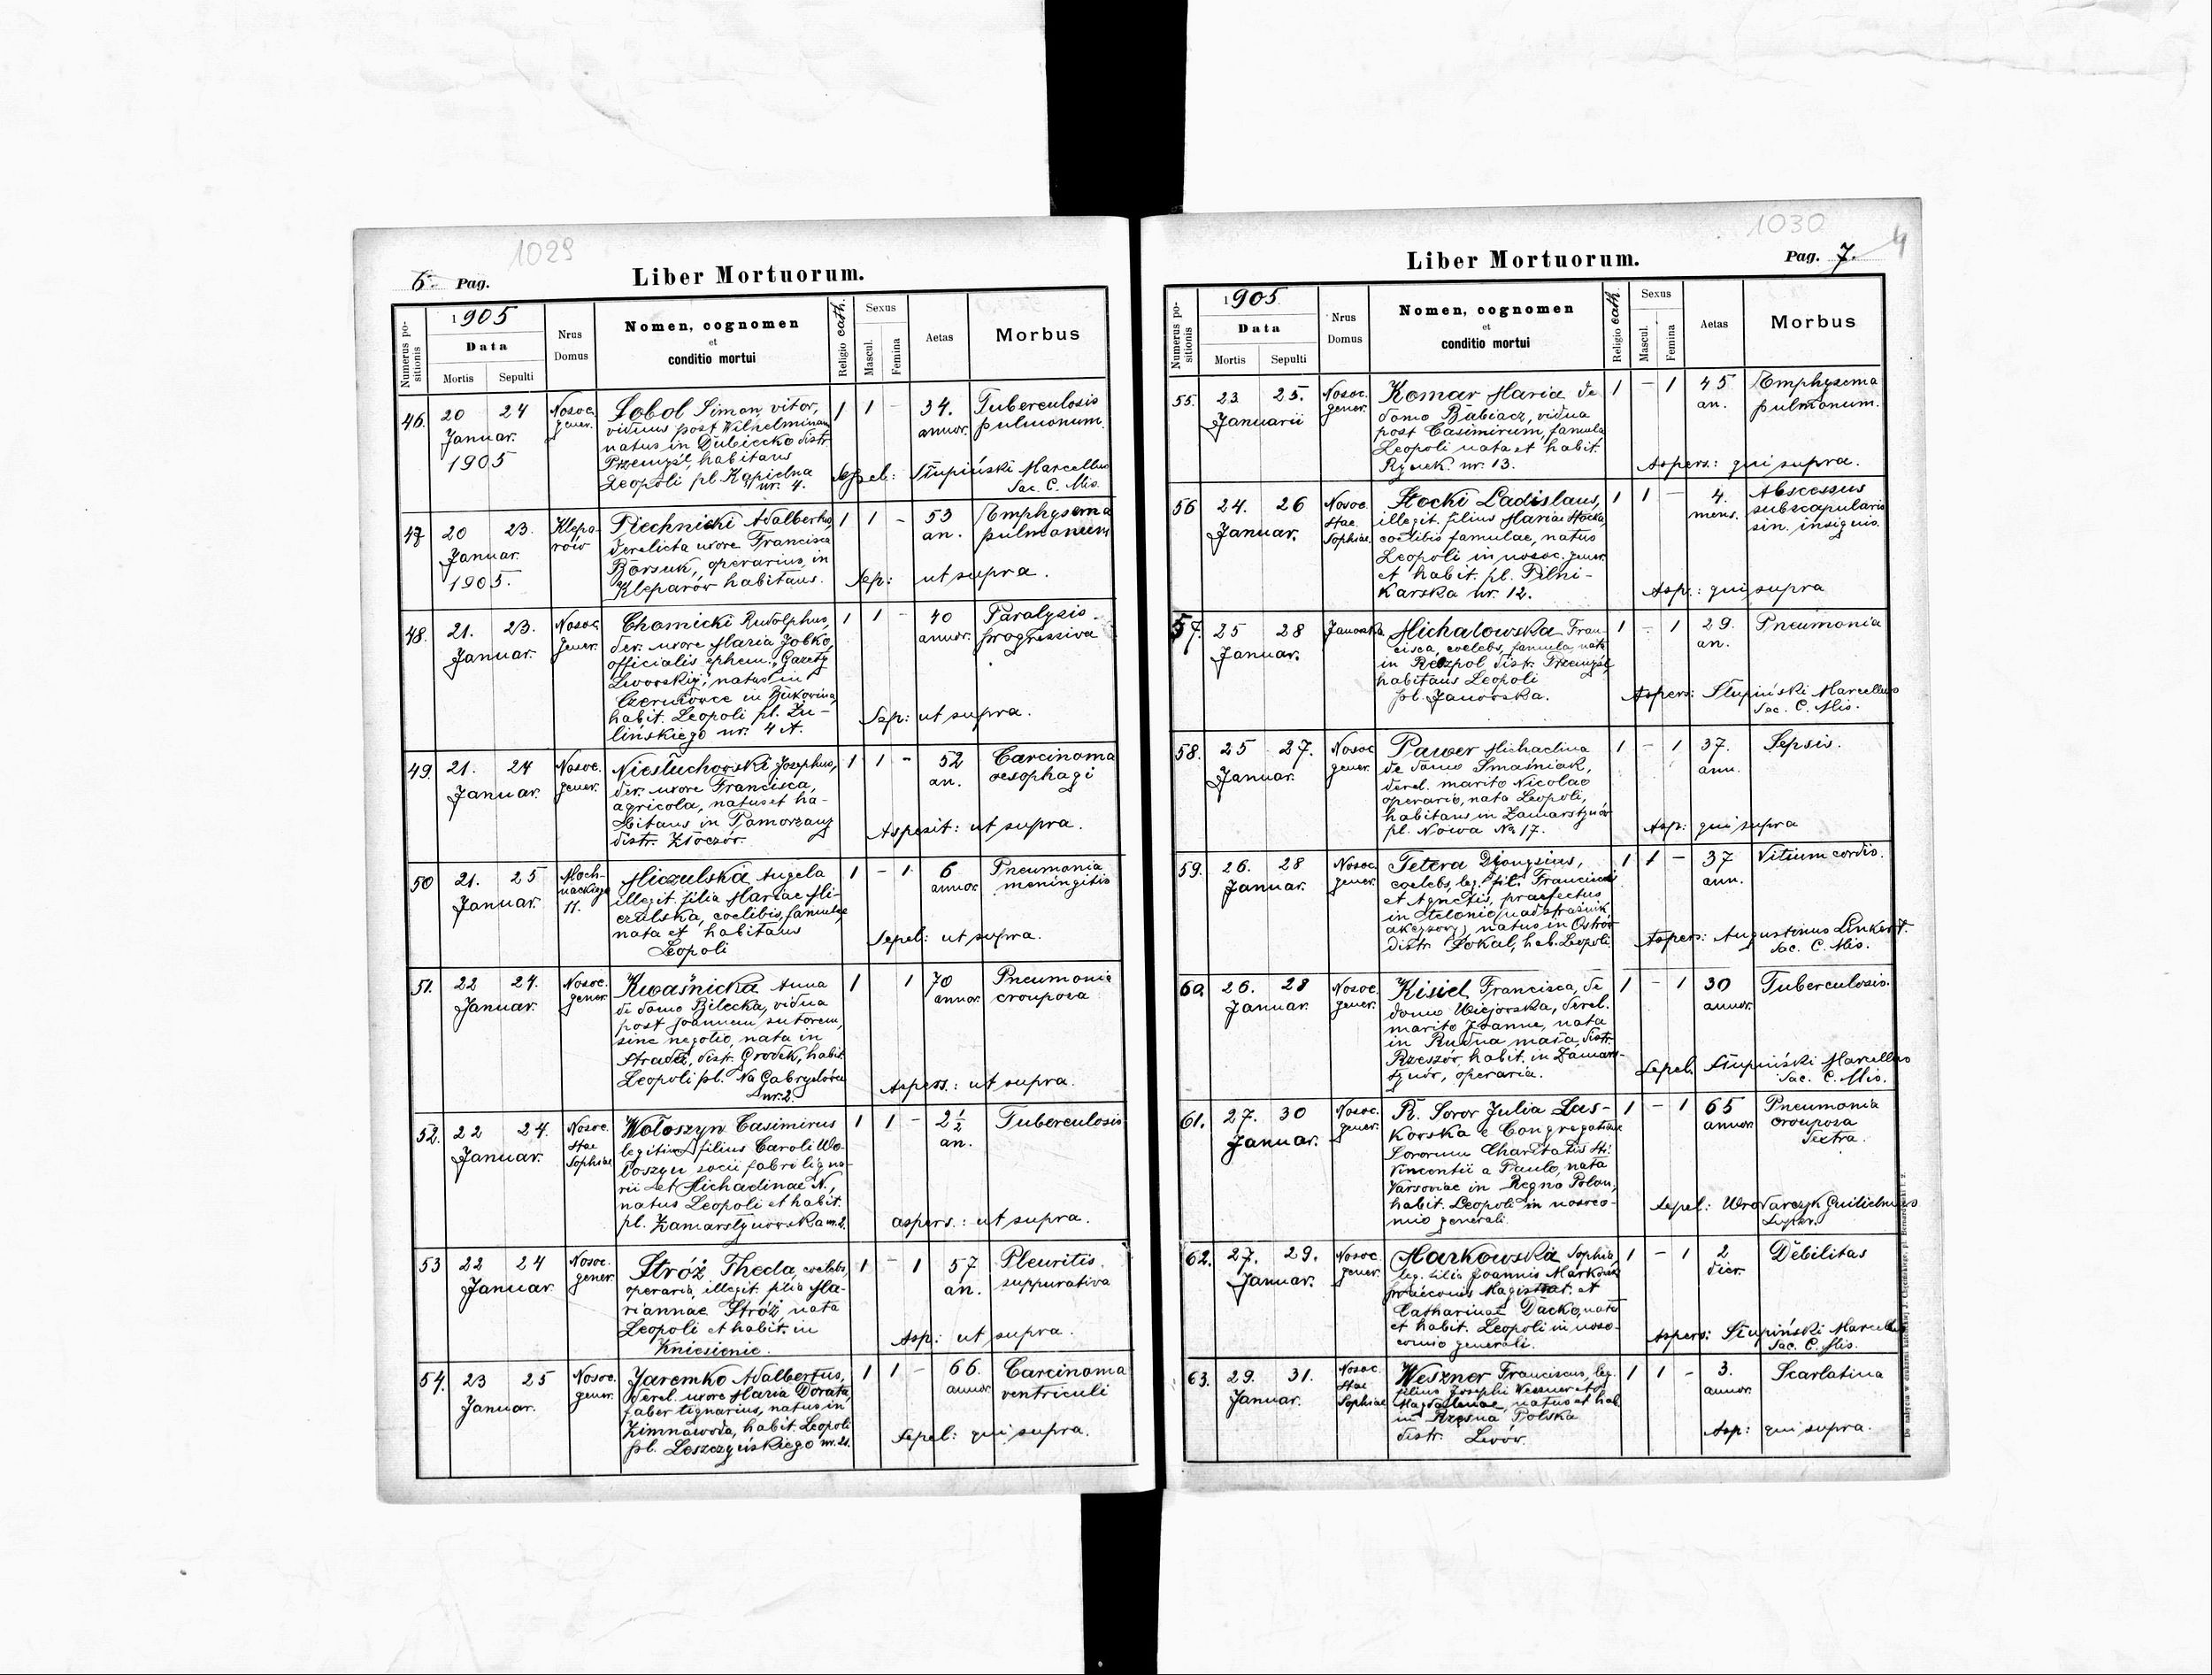 1029
6. Pag.
Liber Mortuorum.
Numerus positionis
1905
Data
Mortis
Sepulti
Nrus Domus
Nomen, cognomen
et
conditio mortui
Religio cath.
Sexus
Mascul.
Femina
Aetas
Morbus
46. 20 24 Nosoc. Sobol Simon, vitor, 1 1 - 34. Tuberculosis
Januar. gener. viduus post Wilhelminam annor. pulmonum.
1905 natus in Dubiecko distr.
Przemyśl, habitans
Leopoli pl. Kąpielna nr. 4. Sepel: Słupiński Marcellus
Sac. C. Mis.
47 20 23. Klepa- Piechnicki Adalbertus, 1 1 - 53 Emphysema
Januar. rów derelicta uxore Francisca an. pulmonum
1905. Borsuk, operarius, in
Kleparów habitans. Sep: ut supra.
48. 21. 23. Nosoc. Chomicki Rudolphus, 1 1 - 40 Paralysis
Januar. gener. der. uxore Maria Jobko, annor. progressiva
officialis ephem. "Gazety
Lwowskiej", natus in
Czerniowce in Bukovina,
habit. Leopoli pl. Zu-
lińskiego nr. 4 A. Sep: ut supra.
49. 21. 24 Nosoc. Niesłuchowski Josephus, 1 1 - 52 Carcinoma
Januar. gener. der. uxore Francisca, an. oesophagi
agricola, natus et ha-
bitans in Pomorzany
distr. Złoczów. Aspexit: ut supra.
50 21. 25 Moch- Miczulska Angela 1 - 1 6 Pneumonia
Januar. nackiego illegit. filia Mariae Mi- annor. meningitis
11. czulska, coelibis, famulae
nata et habitans
Leopoli Sepel: ut supra.
51. 22 24. Nosoc. Kwaśnicka Anna 1 1 70 Pneumonia
Januar. gener. de domo Bilecka, vidua annor. crouposa
post Joannem sutorem,
sine negotio, nata in
distr. Grodek, habit.
Leopoli pl. Na Gabryelówce
nr. 2. Aspers.: ut supra.
52. 22 24. Nosoc. Wołoszyn Casimirus 1 1 - 2½ Tuberculosis
Januar. Stae filius Caroli Wo- an.
Sophiae łoszyn socii fabri ligna-
rii et Michalinae N.,
natus Leopoli et habit.
pl. Zamarstynowska nr. 2. aspers.: ut supra.
53 22 24 Nosoc. Stróż Theda, coelebs, 1 - 1 57 Pleuritis
Januar. gener. operaria, illegit. filia Ma- an. suppurativa
riannae Stróż, nata
Leopoli et habit. in
Kniesienie. Asp: ut supra.
54. 23 25 Nosoc. Jaremko Adalbertus, 1 1 - 66. Carcinoma
Januar. gener. derel. uxore Maria Dorata, annor. ventriculi
faber lignarius, natus in
Zimnawoda, habit. Leopoli
pl. Leszczyńskiego nr. 21. Sepel: qui supra.
1030
4
Liber Mortuorum.
Pag. 7.
Numerus positionis
1905
Data
Mortis
Sepulti
Nrus Domus
Nomen, cognomen
et
conditio mortui
Religio cath.
Sexus
Mascul.
Femina
Aetas
Morbus
55. 23 25. Nosoc. Komar Maria de 1 - 1 45 Emphysema
Januarii gener. domo Babiacz, vidua an. pulmonum.
post Casimirum, famula
Leopoli nata et habit.
Rynek nr. 13. Aspers: qui supra.
56 24. 26 Nosoc. Stocki Ladislaus, 1 1 - 4. Abscessus
Januar. Stae illegit. filius Mariae Stocka, mens. subscapularis
Sophiae. coelibis famulae, natus sin. insignis.
Leopoli in nosoc. gener.
et habit. pl. Pilni-
karska nr. 12. Asp.: qui supra
57. 25 28 Janowska Michałowska Fran- 1 - 1 29. Pneumonia
Januar. cisca, coelebs, famula, nata an.
in distr. Przemyśl,
habitans Leopoli
pl. Janowska. Aspers: Słupiński Marcellus
Sac. C. Mis.
58. 25 27. Nosoc Pawer Michaelina 1 - 1 37. Sepsis.
Januar. gener. de domo Smaśniak, ann.
derel. marito Nicolao
operario, nata Leopoli,
habitans in Zamarstynów
pl. Nowa No 17. Asp: qui supra
59. 26. 28 Nosoc. Tetera Dionysius, 1 1 - 37 Vitium cordis.
Januar. gener. coelebs, leg. fil. Francisci ann.
et Agnetis, praefectus
in telonio (nadstrażnik
akcyzowy), natus in Ostrów
distr. Sokal, hab. Leopoli. Aspers: Augustinus Linkert.
Sac. C. Mis.
60. 26. 28 Nosoc. Kisiel Francisca, de 1 - 1 30 Tuberculosis.
Januar. gener. domo Wiejowska, derel. annor.
marito Joanne, nata
in Rudna mała, distr.
Rzeszów habit. in Zamars-
tynów, operaria. Sepel. Słupiński Marcellus
Sac. C. Mis.
61. 27. 30 Nosoc. R. Soror Julia Las- 1 - 1 65 Pneumonia
Januar. gener. korska e Congregatione annor. crouposa
Sororum Charitatis St. dextra.
Vincentii a Paulo, nata
Varsoviae in Regno Polon.,
habit. Leopoli in nosoco-
mio generali. Sepel: Guilielmus
62. 27. 29. Nosoc. Markowska Sophia, 1 - 1 2 Debilitas
Januar. gener. leg. filia Joannis Markowski dier.
praeconis Magistrat. et
Catharinae Dacko, nata
et habit. Leopoli in noso-
comio generali. Aspers: Słupiński Marcellus
Sac. C. Mis.
63. 29. 31. Nosoc. Weszner Franciscus, leg. 1 1 - 3. Scarlatina
Januar. Stae filius Josephi Weszner et annor.
Sophiae Magdalenae, natus et hab.
in Rzęsna Polska
distr. Lwów. Asp: qui supra.